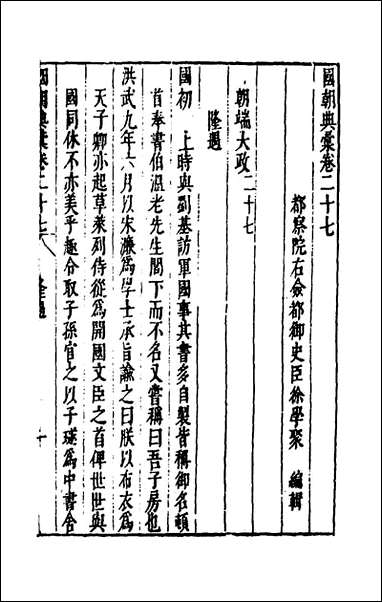 國朝典彙卷二十七
都察院右僉都御史臣徐學聚 編輯
朝端大政二十七
隆遇
國初 上時與劉基訪軍國事其書多自製皆稱御名頓
首奉書伯溫老先生閣下而不名又嘗稱曰吾子房也
洪武九年六月以宋濂爲學士承旨諭之曰朕以布衣爲
天子卿亦起草萊列侍從爲開國文臣之首俾世世與
國同休不亦美乎趣令取子孫官之以子璲爲中書舍
國朝典彙卷二十七 隆遇